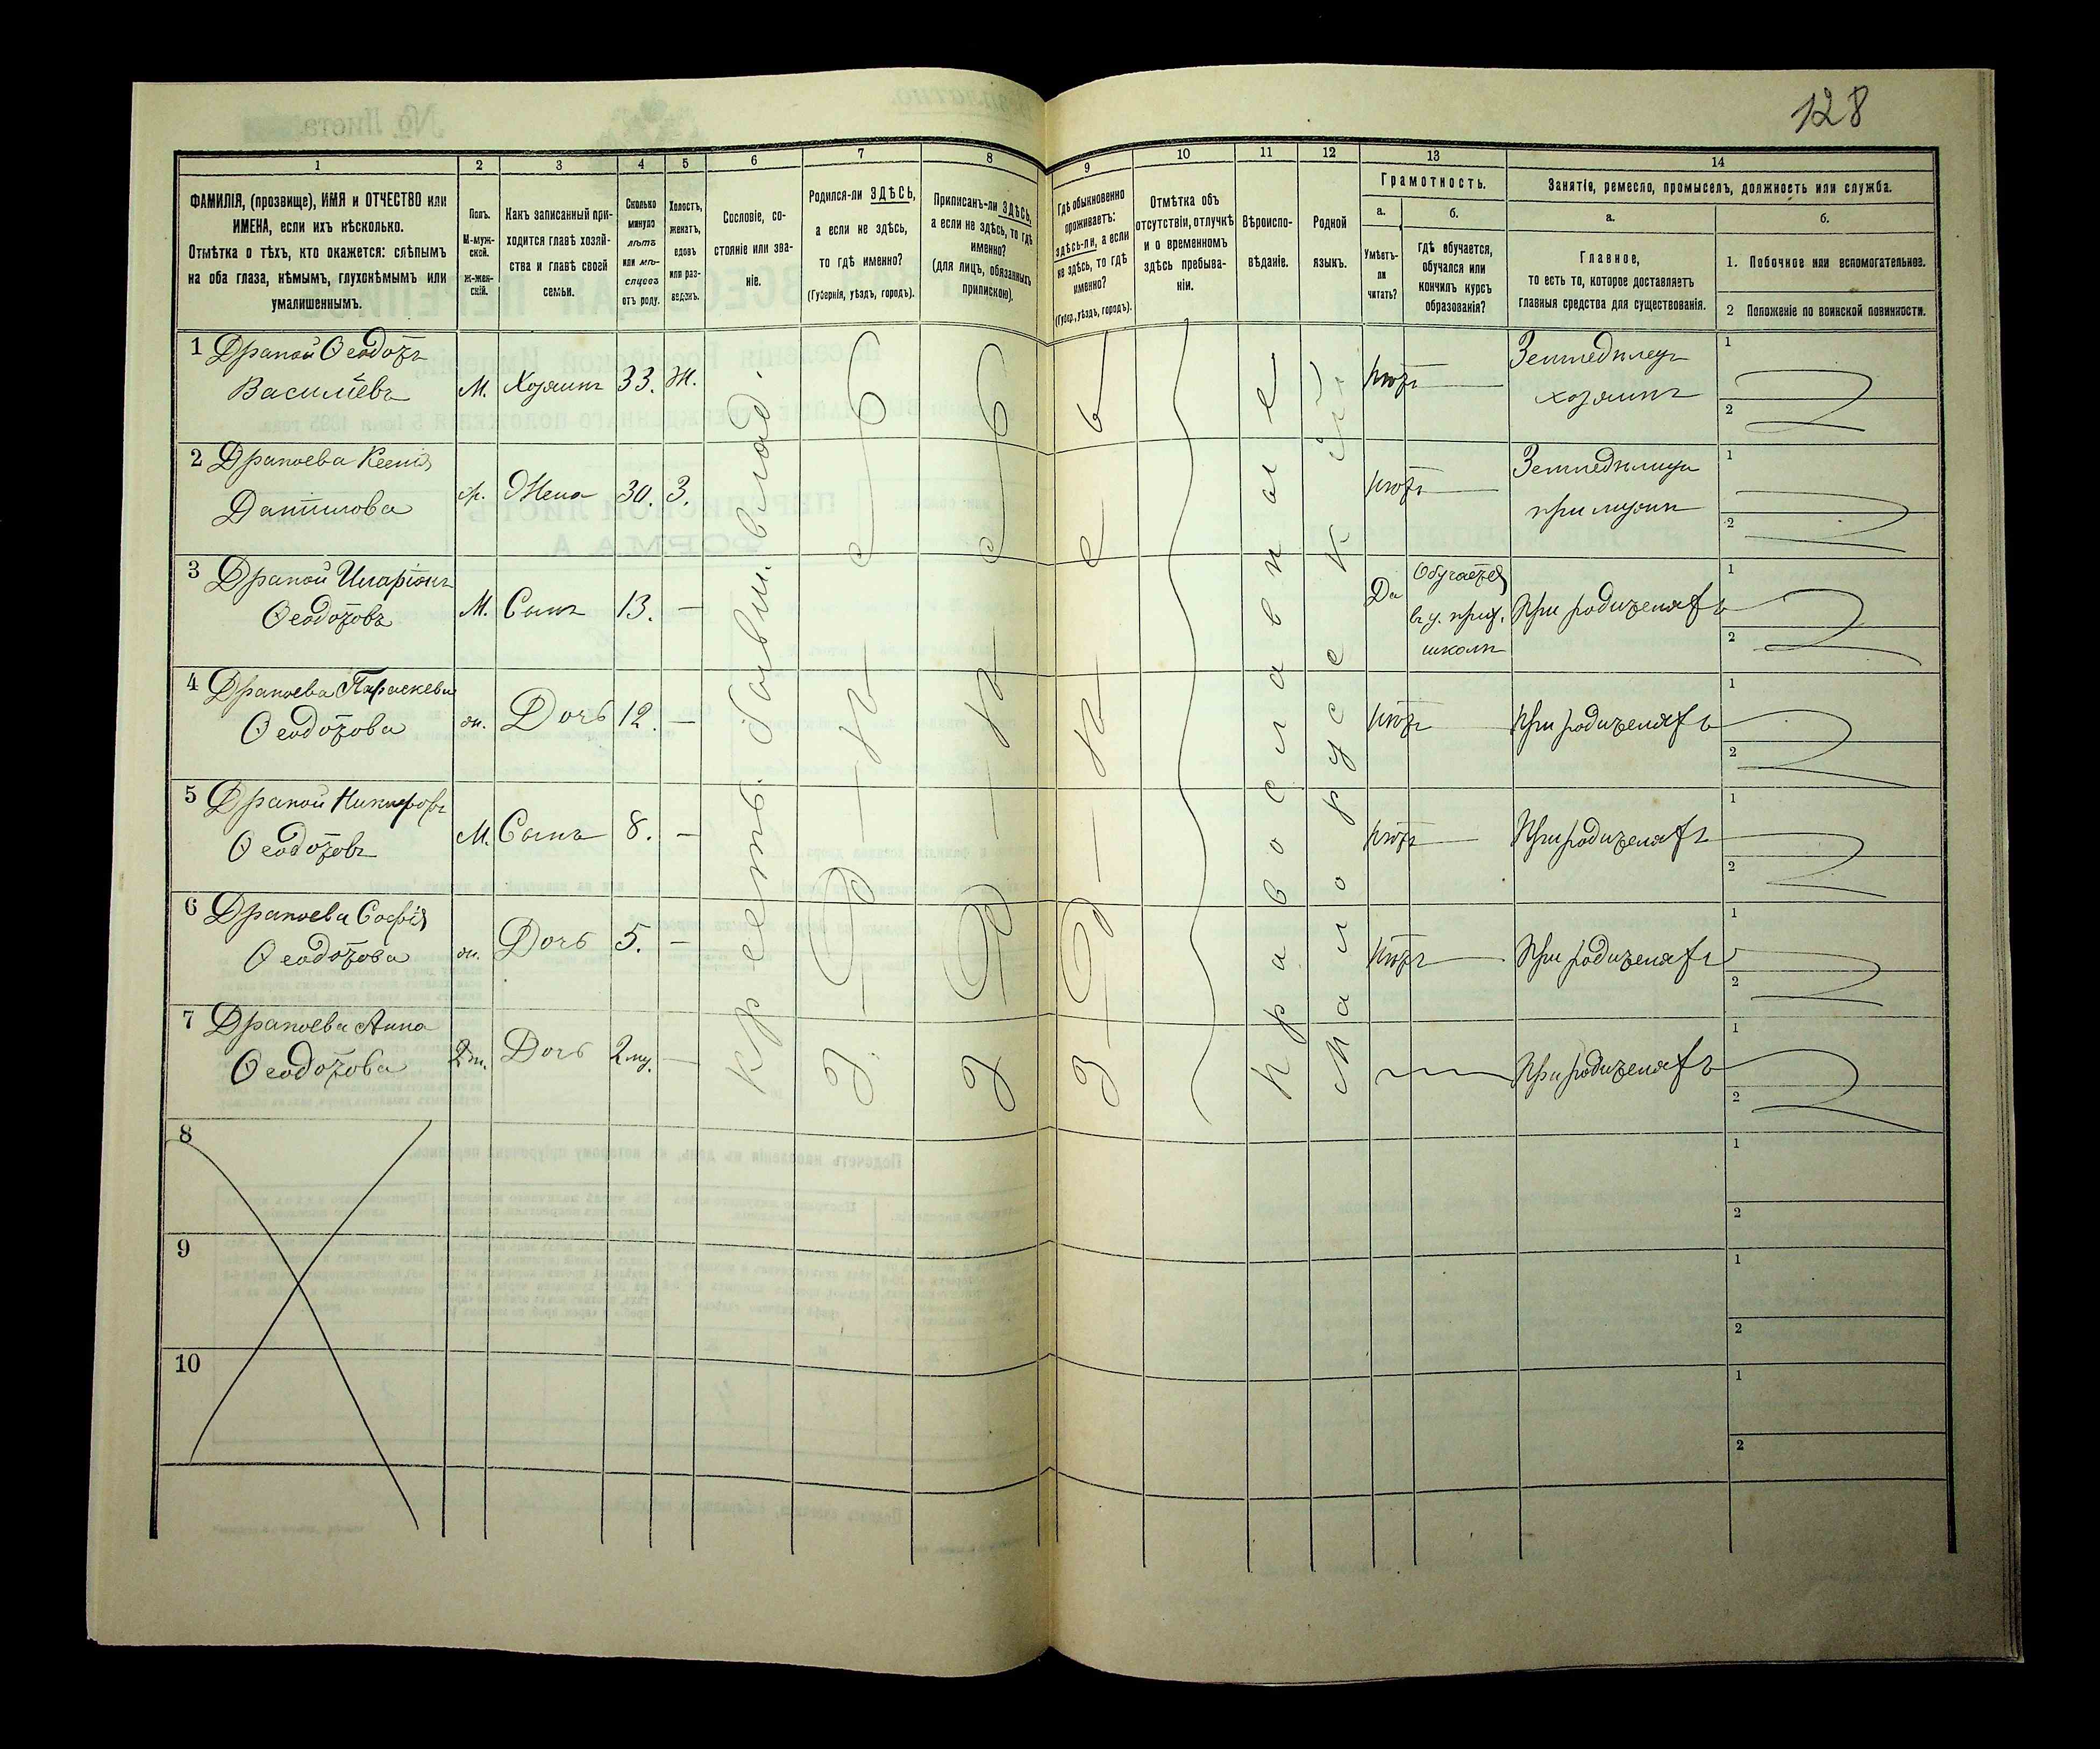 128
1 2 3 4 5 6 7 8 9 10 11 12 13 14
ФАМИЛІЯ, (прозвище), ИМЯ и ОТЧЕСТВО или
ИМЕНА, если ихъ нѣсколько.
Отмѣтка о тѣхъ, кто окажется: слѣпымъ
на оба глаза, нѣмымъ, глухонѣмымъ или
умалишеннымъ.
Полъ.
М-муж-
ской.
ж-жен-
скій.
Какъ записанный при-
ходится главѣ хозяй-
ства и главѣ своей
семьи.
Сколько
минуло
лѣтъ
или мѣ-
сяцевъ
отъ роду.
Холостъ,
женатъ,
вдовъ
или раз-
веденъ.
Сословіе, со-
стояніе или зва-
ніе.
Родился-ли ЗДѢСЬ,
а если не здѣсь,
то гдѣ именно?
(Губернія, уѣздъ, городъ).
Приписанъ-ли ЗДѢСЬ,
а если не здѣсь, то гдѣ
именно?
(для лицъ, обязанныхъ
припискою).
Гдѣ обыкновенно
проживаетъ:
здѣсь-ли, а если
не здѣсь, то гдѣ
именно?
(Губер., уѣздъ, городъ).
Отмѣтка объ
отсутствіи, отлучкѣ
и о временномъ
здѣсь пребыва-
ніи.
Вѣроиспо-
вѣданіе.
Родной
языкъ.
Грамотность.
а.
Умѣетъ-
ли
читать?
б.
гдѣ обучается,
обучался или
кончилъ курсъ
образованія?
Занятіе, ремесло, промыселъ, должность или служба.
а.
Главное,
то есть то, которое доставляетъ
главныя средства для существованія.
б.
1. Побочное или вспомогательное.
2 Положеніе по воинской повинности.
крестьян. бывш. владѣ.
здѣсь
здѣсь
здѣсь
Православное
Малорусскій
1 Драпой Ѳеодотъ
Васильевъ
М. Хозяинъ 33. Ж. нѣтъ
Земледѣлецъ
хозяинъ
1
2
2 Драпоева Ксенія
Даниилова
ж. Жена 30. З. нѣтъ
Земледѣлица
при мужѣ
1
2
3 Драпой Иларіонъ
Ѳеодотовъ
М. Сынъ 13. — Да
Обучается
въ ц. прих.
школѣ
При родителяхъ
1
2
4 Драпоева Параскева
Ѳеодотова
ж. Дочь 12. — нѣтъ При родителяхъ
1
2
5 Драпой Никифоръ
Ѳеодотовъ
М. Сынъ 8. — нѣтъ При родителяхъ
1
2
6 Драпоева Софія
Ѳеодотова
ж. Дочь 5. — нѣтъ При родителяхъ
1
2
7 Драпоева Анна
Ѳеодотова
ж. Дочь 2 — При родителяхъ
1
2
8
1
2
9
1
2
10
1
2